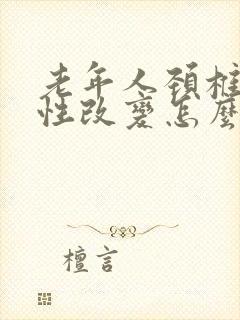 老年人颈椎
性改變怎麼
檀言